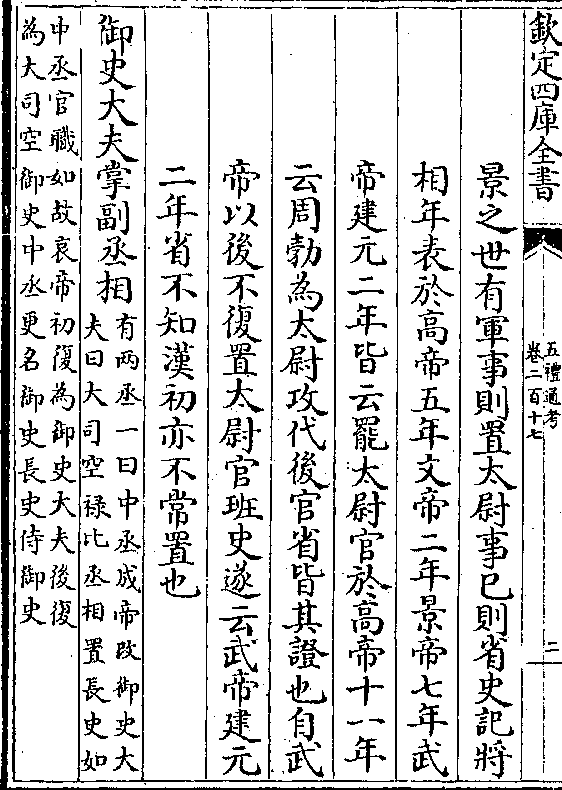 欽定四庫全書
五禮通考
卷二百十七
二
景之世有軍事則置太尉事已則省史記將
相年表於高帝五年文帝二年景帝七年武
帝建元二年皆云罷太尉官於高帝十一年
云周勃為太尉攻代後官省皆其證也自武
帝以後不復置太尉官班史遂云武帝建元
二年省不知漢初亦不常置也
御史大夫掌副丞相
有兩丞一曰中丞成帝改御史大
夫曰大司空祿比丞相置長史如
中丞官職如故哀帝初復為御史大夫後復
為大司空御史中丞更名御史長史侍御史